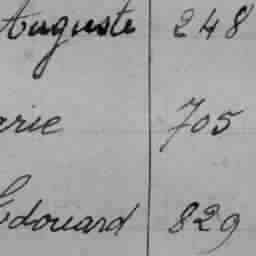 Auguste 248
arie 705
Edouard 829